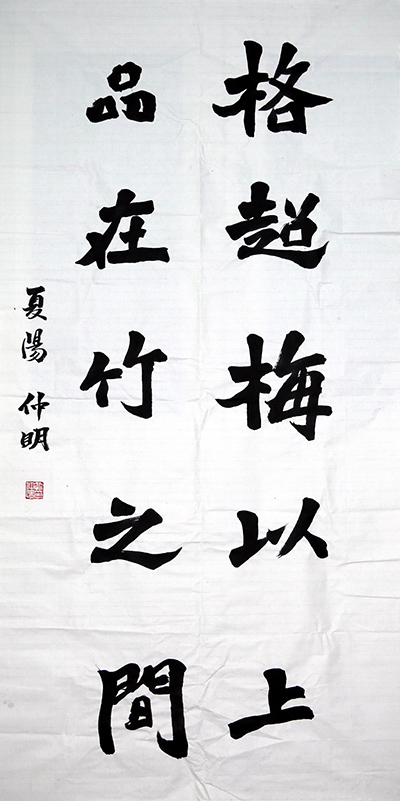 格超梅以上
品在竹之間
夏陽 仲明